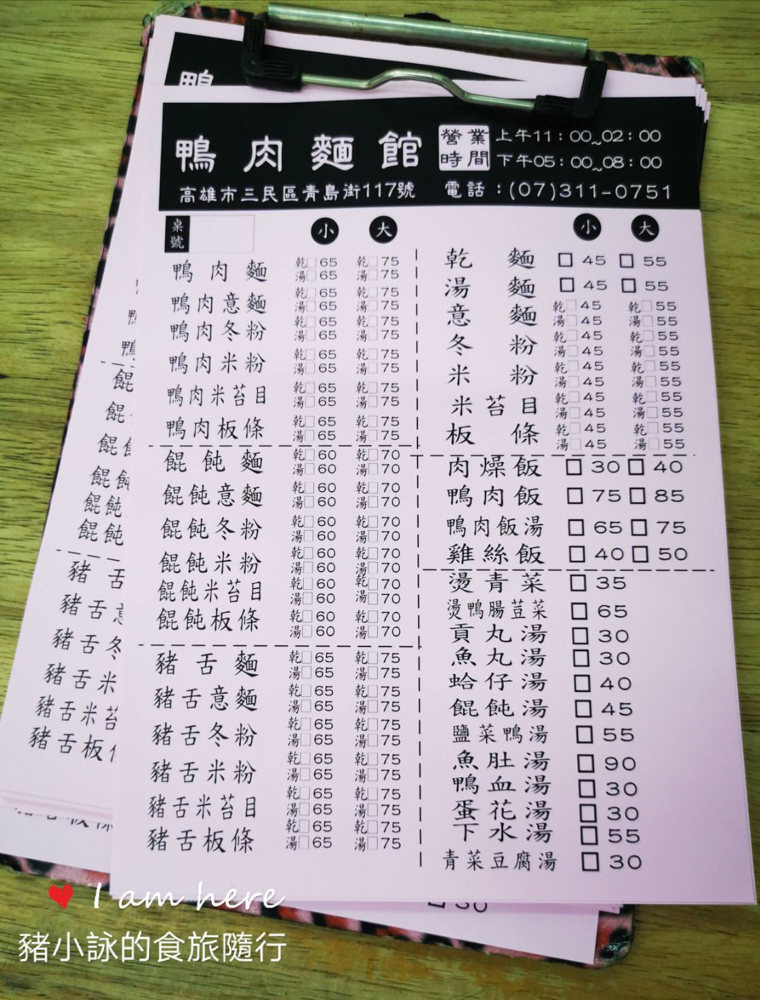 鴨肉麵館
營業時間
上午11：00~02：00
下午05：00~08：00
高雄市三民區青島街117號
電話：(07)311-0751
桌號
小 大
鴨肉麵 乾□65 湯□65 乾□75 湯□75
鴨肉意麵 乾□65 湯□65 乾□75 湯□75
鴨肉冬粉 乾□65 湯□65 乾□75 湯□75
鴨肉米粉 乾□65 湯□65 乾□75 湯□75
鴨肉米苔目 乾□65 湯□65 乾□75 湯□75
鴨肉板條 乾□65 湯□65 乾□75 湯□75
餛飩麵 乾□60 湯□60 乾□70 湯□70
餛飩意麵 乾□60 湯□60 乾□70 湯□70
餛飩冬粉 乾□60 湯□60 乾□70 湯□70
餛飩米粉 乾□60 湯□60 乾□70 湯□70
餛飩米苔目 乾□60 湯□60 乾□70 湯□70
餛飩板條 乾□60 湯□60 乾□70 湯□70
豬舌麵 乾□65 湯□65 乾□75 湯□75
豬舌意麵 乾□65 湯□65 乾□75 湯□75
豬舌冬粉 乾□65 湯□65 乾□75 湯□75
豬舌米粉 乾□65 湯□65 乾□75 湯□75
豬舌米苔目 乾□65 湯□65 乾□75 湯□75
豬舌板條 乾□65 湯□65 乾□75 湯□75
小 大
乾麵 □45 □55
湯麵 □45 □55
意麵 乾□45 湯□45 乾□55 湯□55
冬粉 乾□45 湯□45 乾□55 湯□55
米粉 乾□45 湯□45 乾□55 湯□55
米苔目 乾□45 湯□45 乾□55 湯□55
板條 乾□45 湯□45 乾□55 湯□55
肉燥飯 □30 □40
鴨肉飯 □75 □85
鴨肉飯湯 □65 □75
雞絲飯 □40 □50
燙青菜 □35
燙鴨腸荳菜 □65
貢丸湯 □30
魚丸湯 □30
蛤仔湯 □40
餛飩湯 □45
鹽菜鴨湯 □55
魚肚湯 □90
鴨血湯 □30
蛋花湯 □30
下水湯 □55
青菜豆腐湯 □30
鴨
餛
餛
餛
餛飩
餛飩
餛飩
豬舌
豬舌意
豬舌冬
豬舌米
豬舌米苔
豬舌板
□30
I am here
豬小詠的食旅隨行